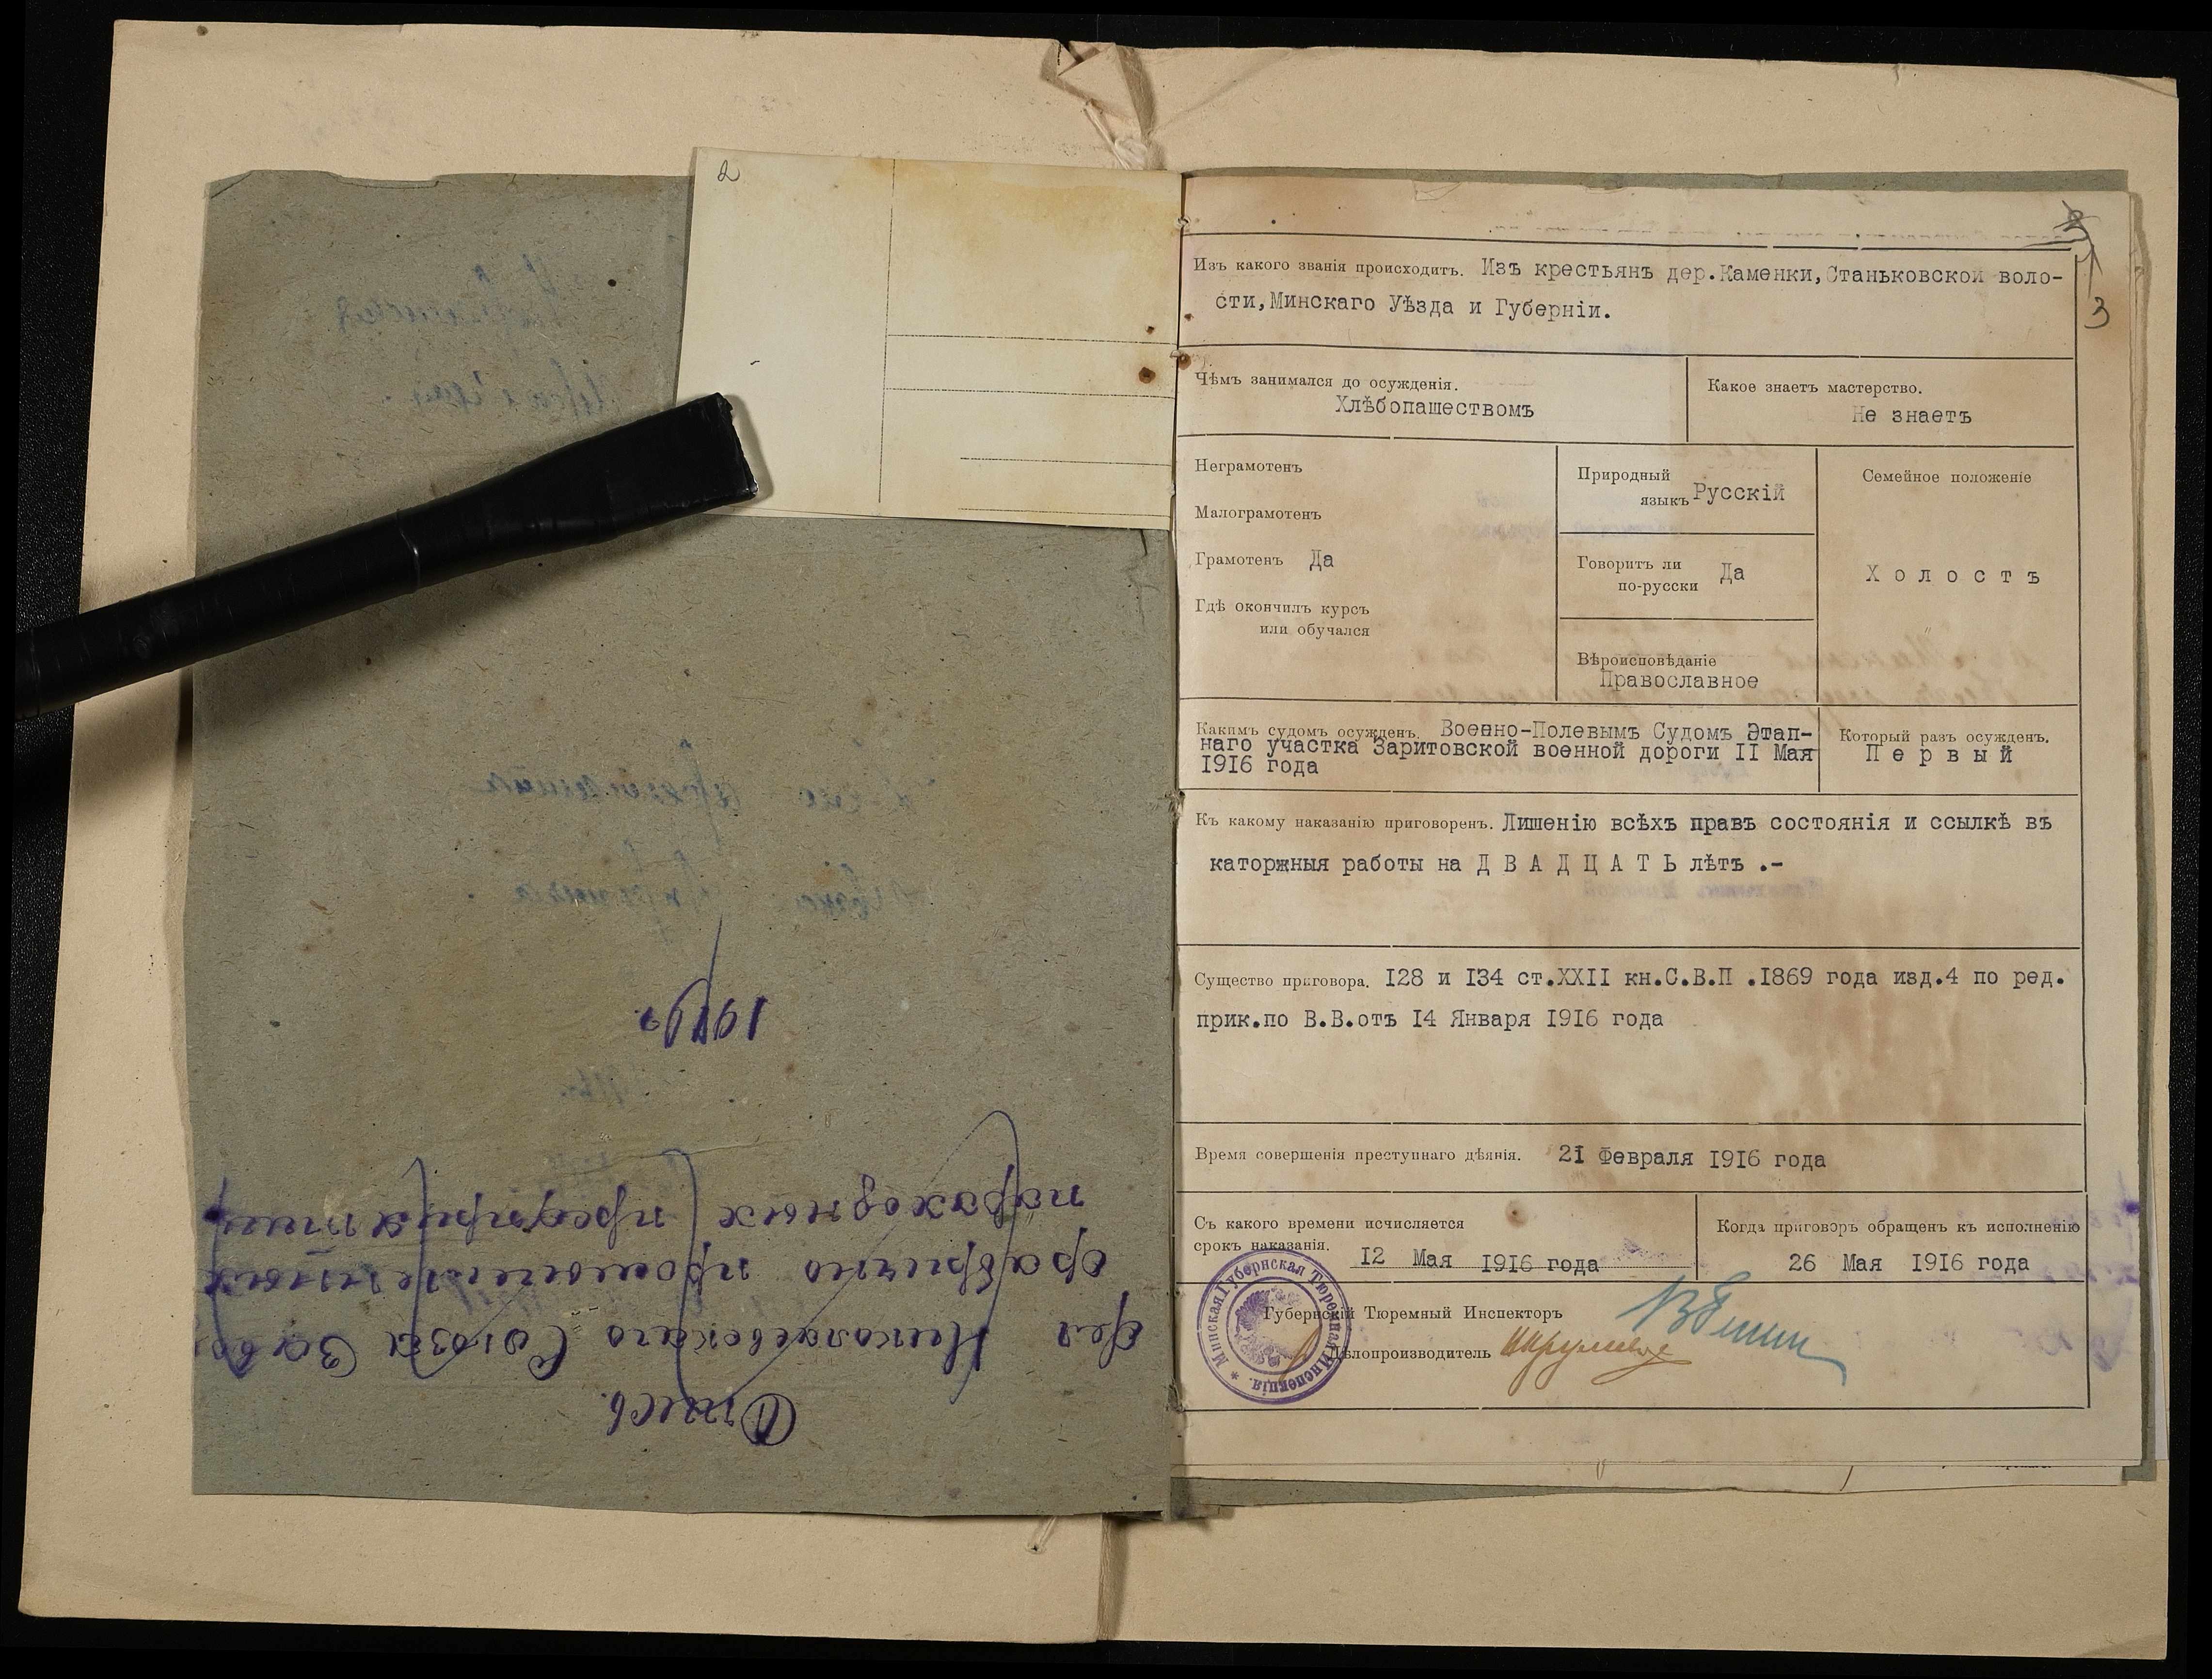 2
3
Изъ какого званія происходитъ. Изъ крестьянъ дер.Каменки,Станьковской воло-
сти,Минскаго Уѣзда и Губерніи.
Чѣмъ занимался до осужденія.
Хлѣбопашествомъ
Какое знаетъ мастерство.
Не знаетъ
Неграмотенъ
Малограмотенъ
Грамотенъ Да
Гдѣ окончилъ курсъ
или обучался
Природный
языкъ Русскій
Говоритъ ли
по-русски Да
Вѣроисповѣданіе
Православное
Семейное положеніе
Х о л о с т ъ
Какимъ судомъ осужденъ. Военно-Полевымъ Судомъ Этап-
наго участка Заритовской военной дороги II Мая
1916 года
Который разъ осужденъ.
П е р в ы й
Къ какому наказанію приговоренъ. Лишенію всѣхъ правъ состоянія и ссылкѣ въ
каторжныя работы на Д В А Д Ц А Т Ь лѣтъ .-
Существо приговора. I28 и I34 ст.XXII кн.С.В.П .I869 года изд.4 по ред.
прик.по В.В.отъ I4 Января I9I6 года
Время совершенія преступнаго дѣянія. 21 Февраля I9I6 года
Съ какого времени исчисляется
срокъ наказанія. I2 Мая I9I6 года
Когда приговоръ обращенъ къ исполненію
26 Мая I9I6 года
Губернскій Тюремный Инспекторъ
Дѣлопроизводитель
Минская Губернская Тюремная Инспекція.
Опись
дел Николаевскаго Союза Заво
фабрично промышленных
пароходных предприятии